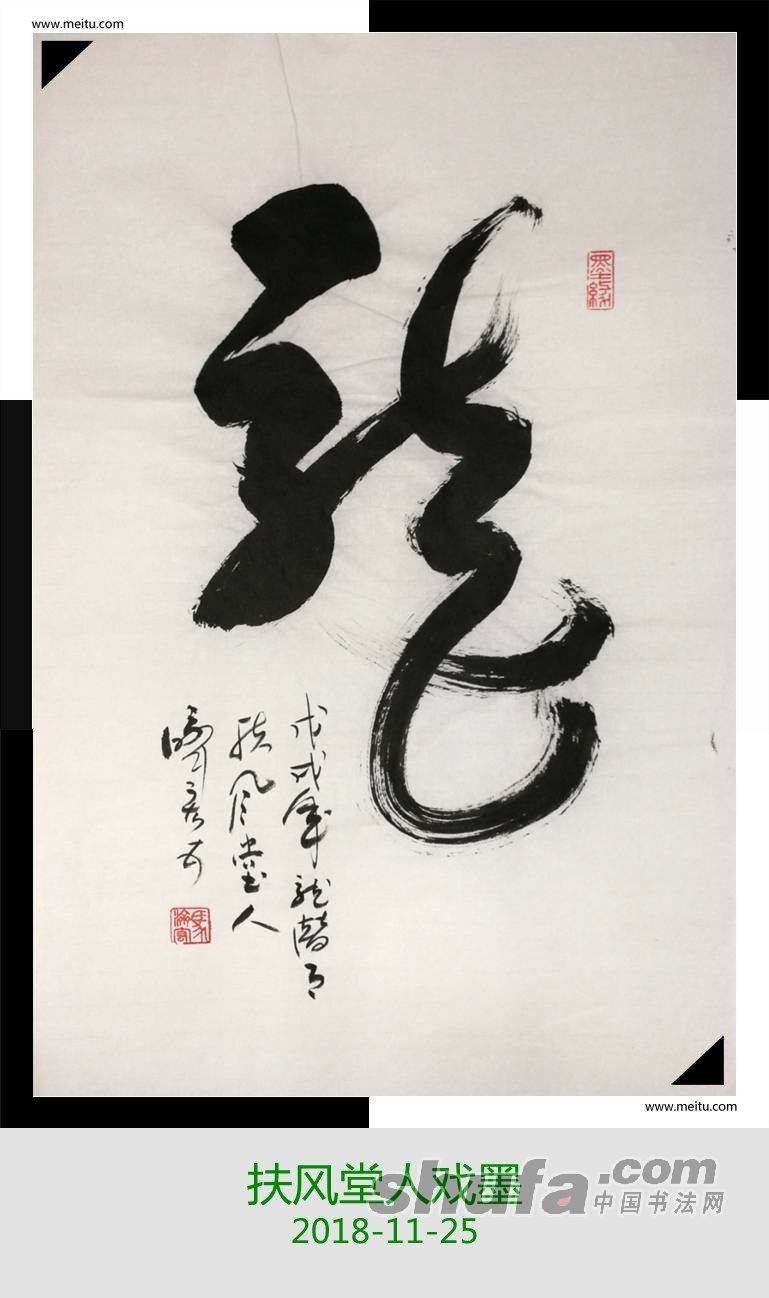 www.meitu.com
龍
戊戌年龙潜月
扶风堂人
www.meitu.com
扶风堂人戏墨
2018-11-25
shufa.com
中国书法网